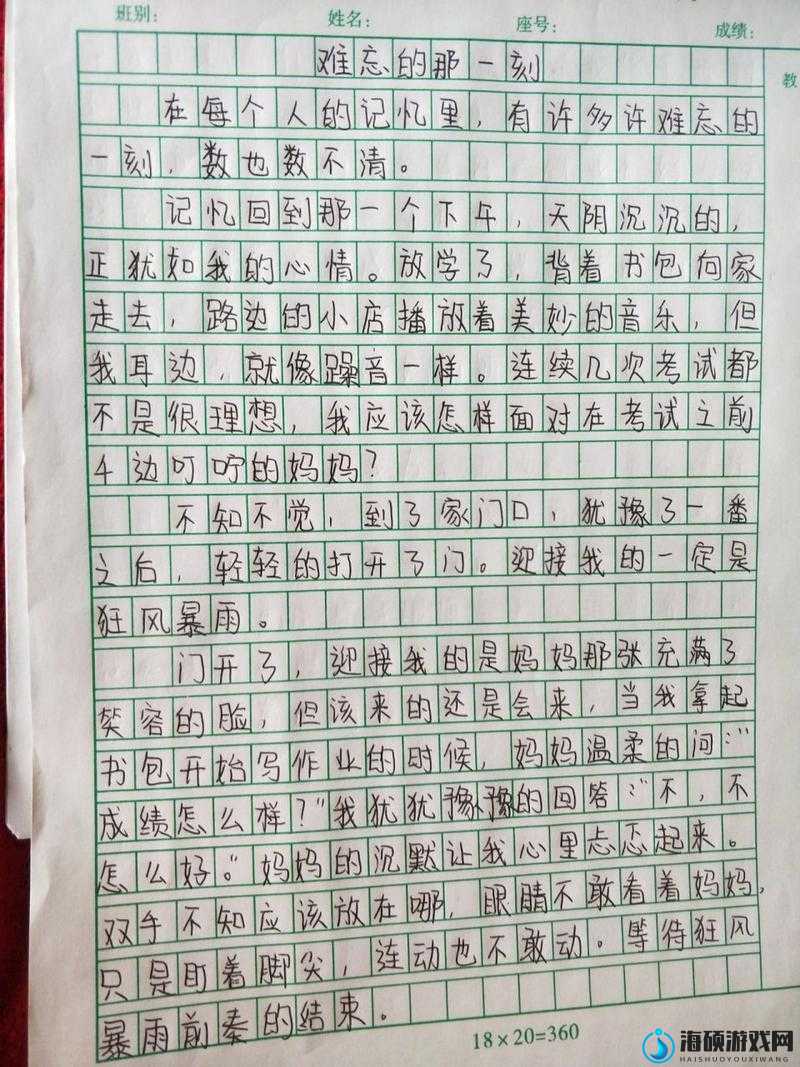 班别: 姓名: 座号: 成绩:
难忘的那一刻
教
在每个人的记忆里，有许多许难忘的
一刻，数也数不清。
记忆回到那一个下午，天阴沉沉的，
正犹如我的心情。放学了，背着书包向家
走去，路边的小店播放着美妙的音乐，但
我耳边，就像躁音一样。连续几次考试都
不是很理想，我应该怎样面对在考试之前
4边叮咛的妈妈？
不知不觉，到了家门口，犹豫了一番
之后，轻轻的打开了门。迎接我的一定是
狂风暴雨。
门开了，迎接我的是妈妈那张充满了
笑容的脸，但该来的还是会来，当我拿起
书包开始写作业的时候，妈妈温柔的问："
成绩怎么样？"我犹犹豫豫的回答："不，不
怎么好。"妈妈的沉默让我心里忐忑起来。
双手不知应该放在哪，眼睛不敢看着妈妈，
只是盯着脚尖，连动也不敢动。等待狂风
暴雨前奏的结束。
18×20=360
海硕游戏网
HAISHUOYOUXIWANG